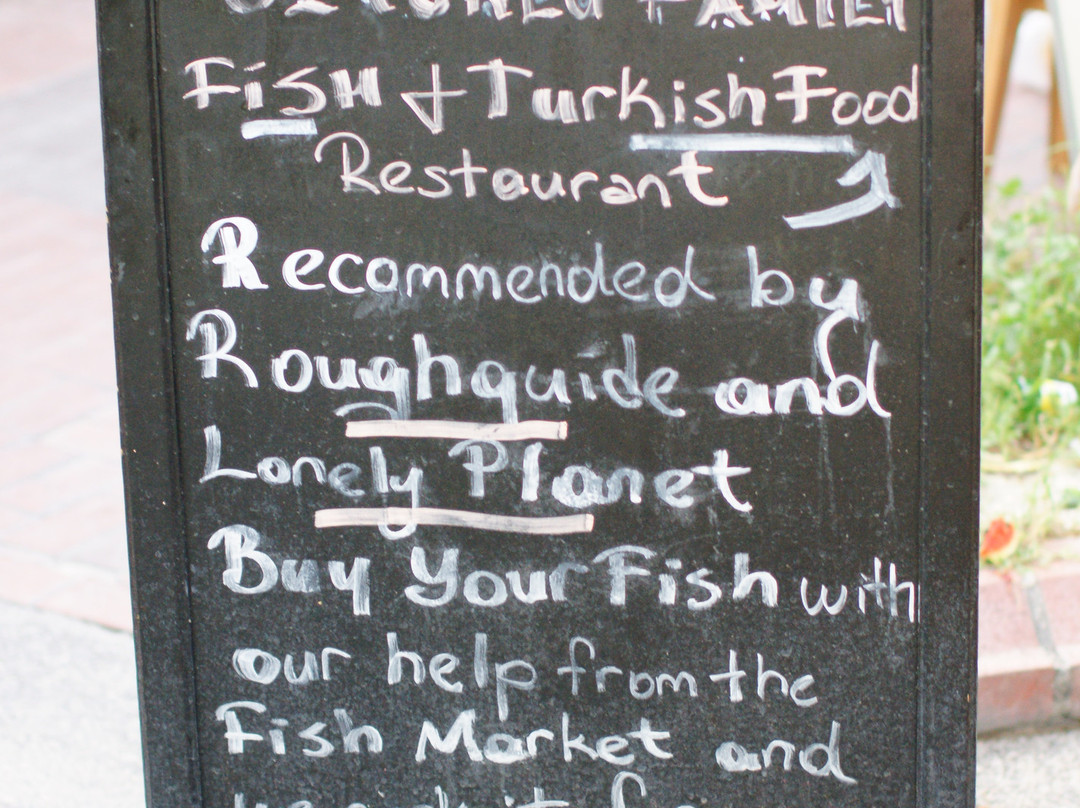 FAMILY
Fish + Turkish Food
Restaurant
Recommended by
Roughguide and
Lonely Planet
Buy Your Fish with
our help from the
Fish Market and